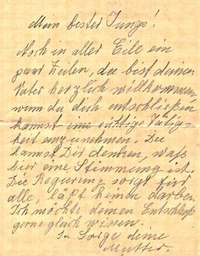 Mein bester Junge!
Noch in aller Eile ein
paar Zeilen, du bist deinem
Vater herzlich willkommen,
wenn du dich entschließen
kannst eine tätige
anzunehmen. Du
kannst Dir denken, was
hier eine Stimmung ist.
Die Regierung sorgt für
alle, läßt keinen darben.
Ich möchte deinen Entschluß
gerne gleich wissen.
In Sorge deine
Mutter.